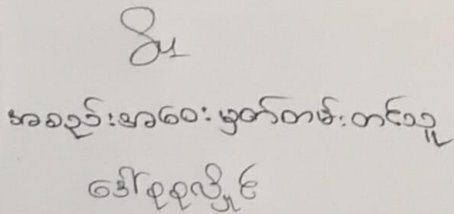 အစည်းအဝေးမှတ်တမ်းတင်သူ
ဒေါ်စုစုလှိုင်